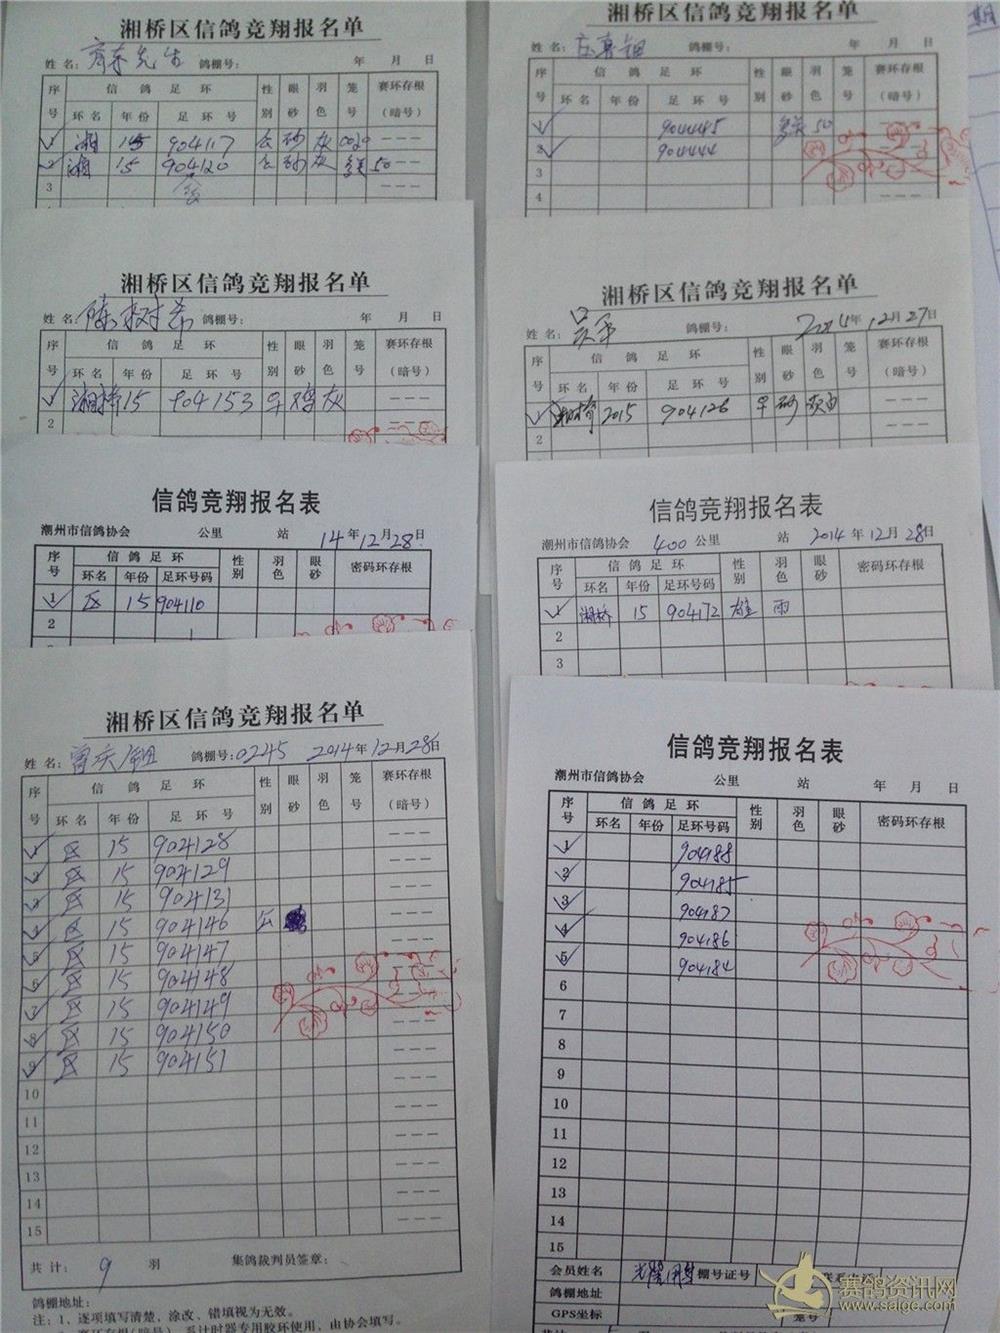 湘桥区信鸽竞翔报名单
姓名: 齐东先生 鸽棚号: 年 月 日
序号 信鸽足环 性别 眼砂 羽色 笼号 赛环存根(暗号)
环名 年份 足环号
1 湘 15 904117 砂 灰 0020 ---
2 湘 15 904120 砂 灰 50 ---
3 ---
湘桥区信鸽竞翔报名单
姓名: 鸽棚号: 年 月 日
序号 信鸽足环 性别 眼砂 羽色 笼号 赛环存根(暗号)
环名 年份 足环号
1 904445 50
2 904444
3
4
湘桥区信鸽竞翔报名单
姓名: 陈树希 鸽棚号: 年 月 日
序号 信鸽足环 性别 眼砂 羽色 笼号 赛环存根(暗号)
环名 年份 足环号
1 湘桥 15 904153 鸡 灰 ---
2 ---
湘桥区信鸽竞翔报名单
姓名: 鸽棚号: 2014年12月27日
序号 信鸽足环 性别 眼砂 羽色 笼号 赛环存根(暗号)
环名 年份 足环号
1 2015 904126 砂 ---
2 ---
信鸽竞翔报名表
潮州市信鸽协会 公里 站 14年12月28日
序号 信鸽足环 性别 羽色 眼砂 密码环存根
环名 年份 足环号码
1 区 15 904110
2
信鸽竞翔报名表
潮州市信鸽协会 400公里 站 2014年12月28日
序号 信鸽足环 性别 羽色 眼砂 密码环存根
环名 年份 足环号码
1 湘桥 15 904172 雄 雨
2
3
湘桥区信鸽竞翔报名单
姓名: 鸽棚号: 0245 2014年12月28日
序号 信鸽足环 性别 眼砂 羽色 笼号 赛环存根(暗号)
环名 年份 足环号
1 区 15 904128 ---
2 区 15 904129 ---
3 区 15 904131 ---
4 区 15 904146 ---
5 区 15 904147 ---
6 区 15 904148
7 区 15 904149 ---
8 区 15 904150 ---
9 区 15 904151 ---
10 ---
11 ---
12 ---
13 ---
14 ---
15 ---
共计: 9 羽 集鸽裁判员签章:
鸽棚地址:
注: 1、逐项填写清楚,涂改、错填视为无效。
2、赛环存根(暗号)系计时器专用胶环使用、由协会填写。
信鸽竞翔报名表
潮州市信鸽协会 公里 站 年 月 日
序号 信鸽足环 性别 羽色 眼砂 密码环存根
环名 年份 足环号码
1 904188
2 904185
3 904187
4 904186
5 904184
6
7
8
9
10
11
12
13
14
15
会员姓名 棚号证号
鸽棚地址
GPS坐标 笼号
赛鸽资讯网
www.saige.com